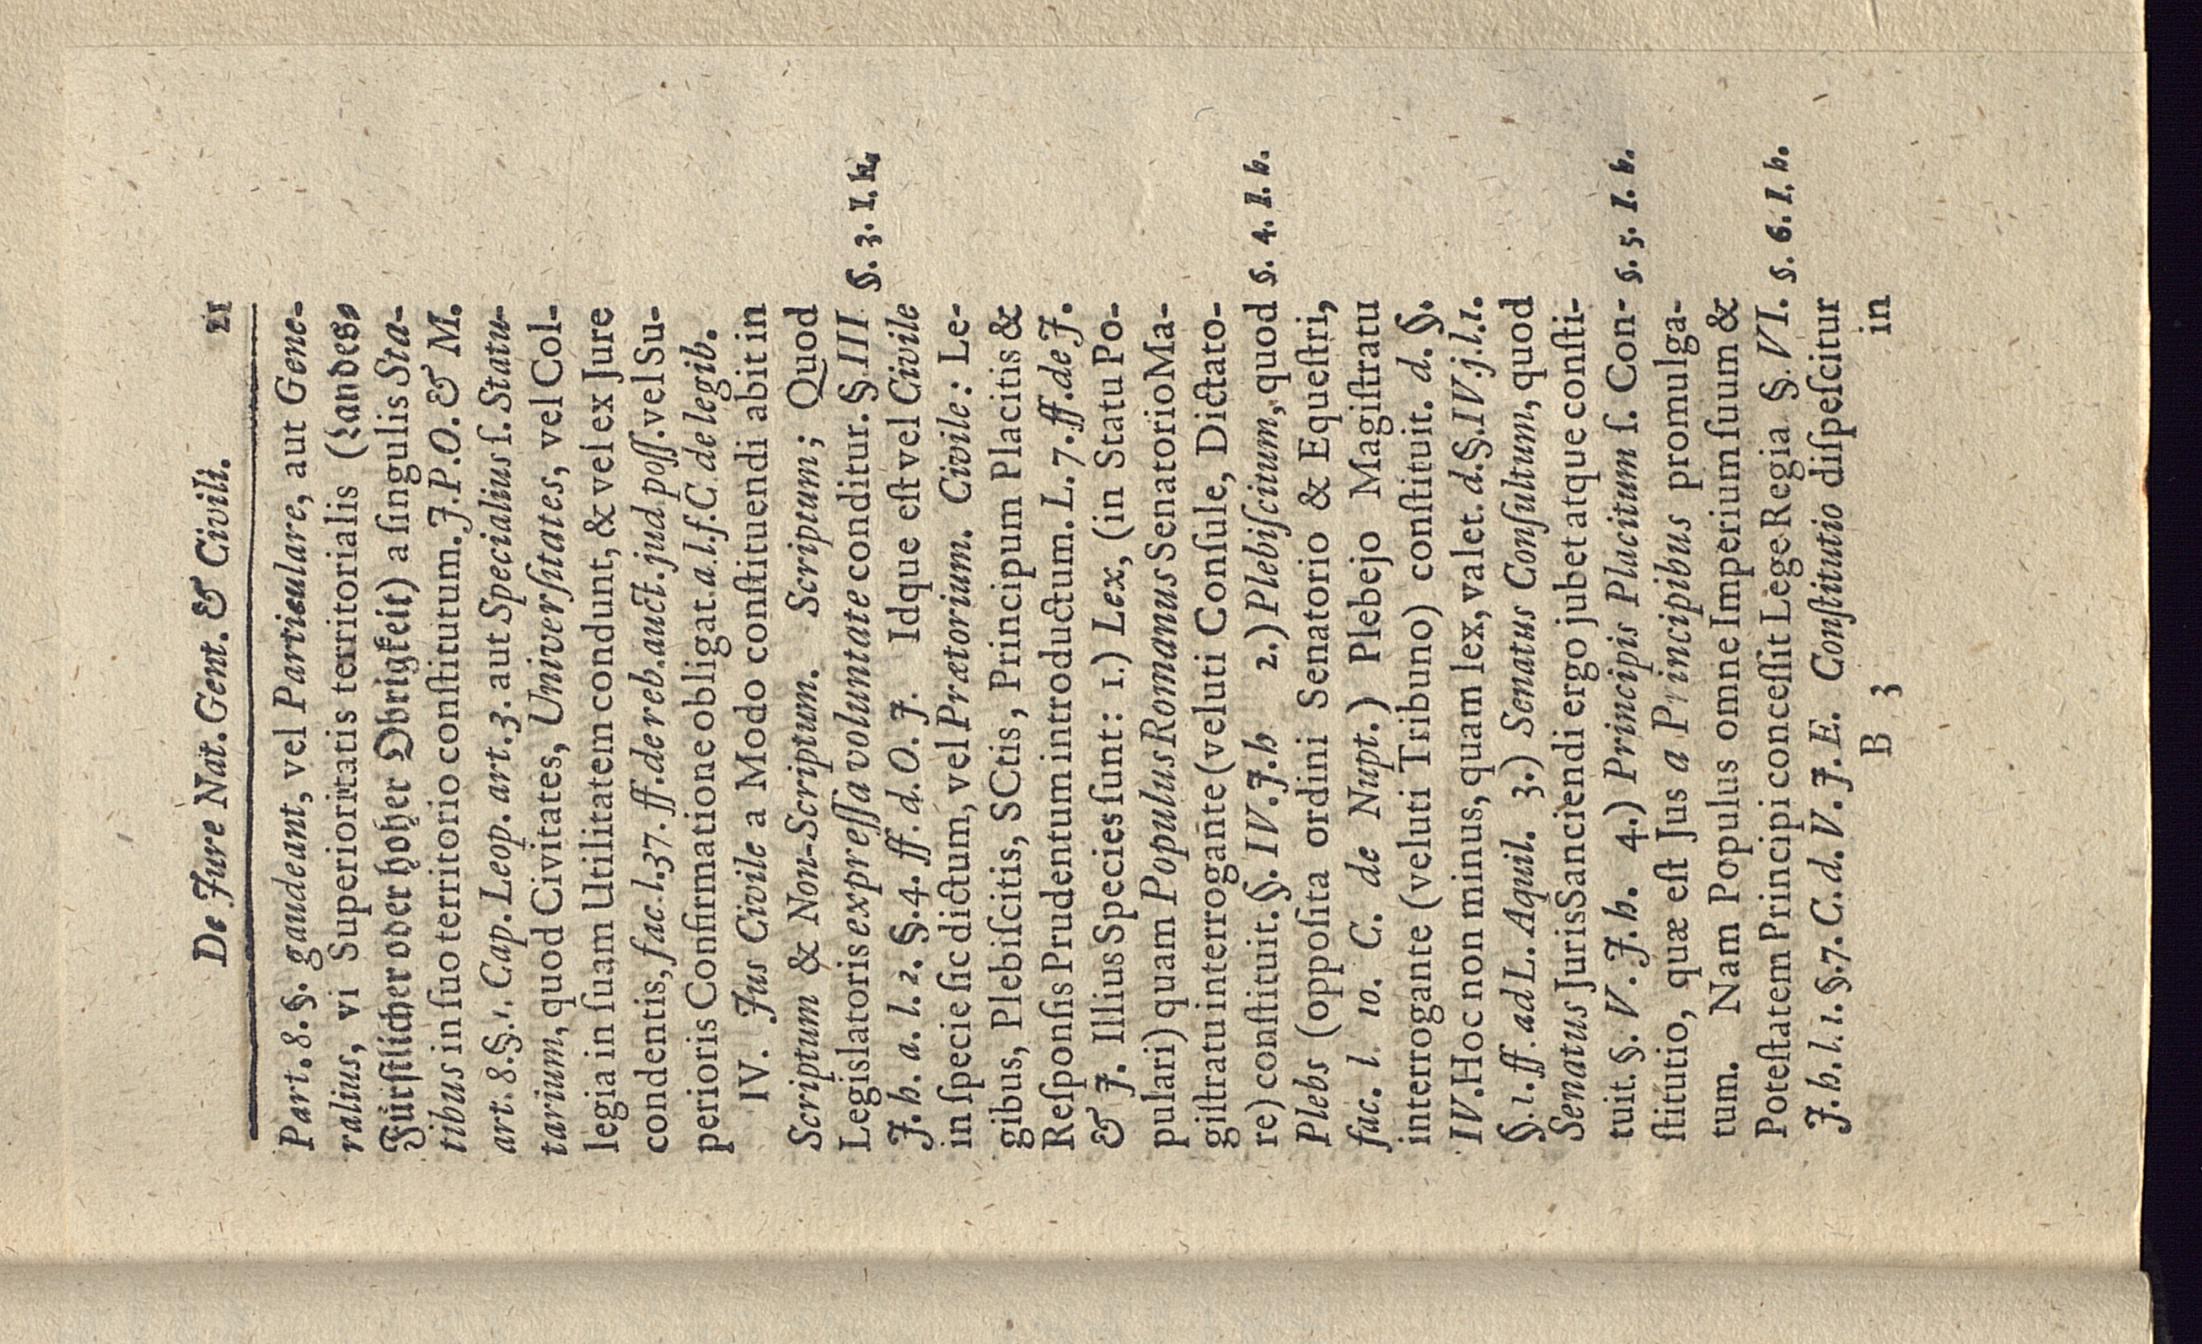 De Jure Nat. Gent. & Civili. 21
Part. 8. §. gaudeant, vel Particulare, aut Gene-
ralius, vi Superioritatis territorialis (Landes-
Fürſtlicher oder hoher Obrigkeit) a ſingulis Sta-
tibus in ſuo territorio conſtitutum. J. P. O. & M.
art. 8. §. 1. Cap. Leop. art. 3. aut Specialius ſ. Statu-
tarium, quod Civitates, Univerſitates, vel Col-
legia in ſuam Utilitatem condunt, & vel ex Jure
condentis, fac. l. 37. ff. de reb. auct. jud. poſſ. vel Su-
perioris Confirmatione obligat. a. l. f. C. de legib.
IV. Jus Civile a Modo conſtituendi abit in
Scriptum & Non-Scriptum. Scriptum; Quod
Legislatoris expreſſa voluntate conditur. §. III §. 3. I. h.
J. h. a. l. 2. §. 4. ff. d. O. J. Idque eſt vel Civile
in ſpecie ſic dictum, vel Prætorium. Civile: Le-
gibus, Plebiſcitis, SCtis, Principum Placitis &
Reſponſis Prudentum introductum. L. 7. ff. de J.
& J. Illius Species ſunt: 1.) Lex, (in Statu Po-
pulari) quam Populus Romanus Senatorio Ma-
giſtratu interrogante (veluti Conſule, Dictato-
re) conſtituit. §. IV. J. h 2.) Plebiſcitum, quod §. 4. I. h.
Plebs (oppoſita ordini Senatorio & Equeſtri,
fac. l. 10. C. de Nupt.) Plebejo Magiſtratu
interrogante (veluti Tribuno) conſtituit. d. §.
IV. Hoc non minus, quam lex, valet. d. §. IV. j. l. 1.
§. 1. ff. ad L. Aquil. 3.) Senatus Conſultum, quod
Senatus Juris Sanciendi ergo jubet atque conſti-
tuit. §. V. J. h. 4.) Principis Placitum ſ. Con- §. 5. I. h.
ſtitutio, quæ eſt Jus a Principibus promulga-
tum. Nam Populus omne Imperium ſuum &
Poteſtatem Principi conceſſit Lege Regia §. VI. §. 6. I. h.
J. h. l. 1. §. 7. C. d. V. J. E. Conſtitutio diſpeſcitur
B 3 in